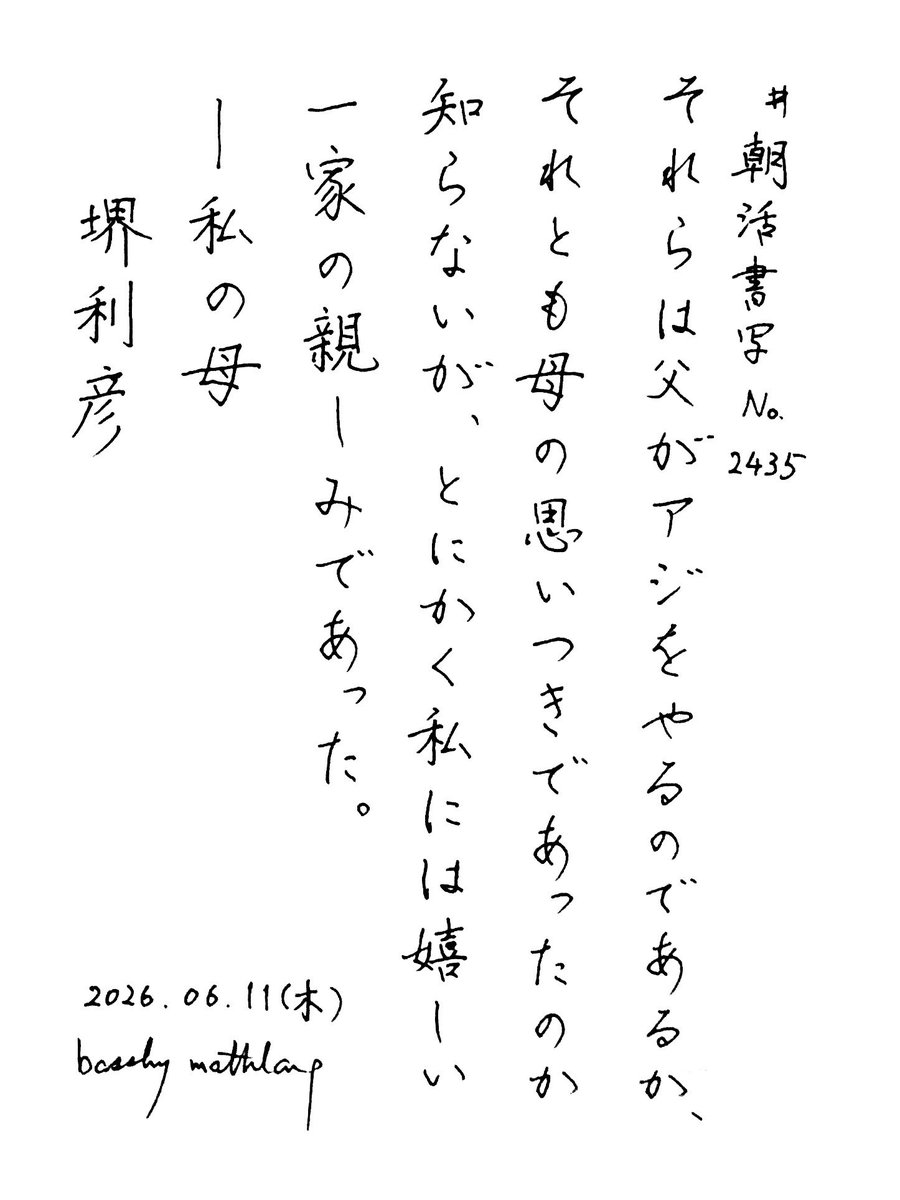 #朝活書写 No. 2435
それらは父がアジをやるのであるか、
それとも母の思いつきであったのか
知らないが、とにかく私には嬉しい
一家の親しみであった。
―私の母
堺利彦
2026.06.11(木)
basshy mathlang